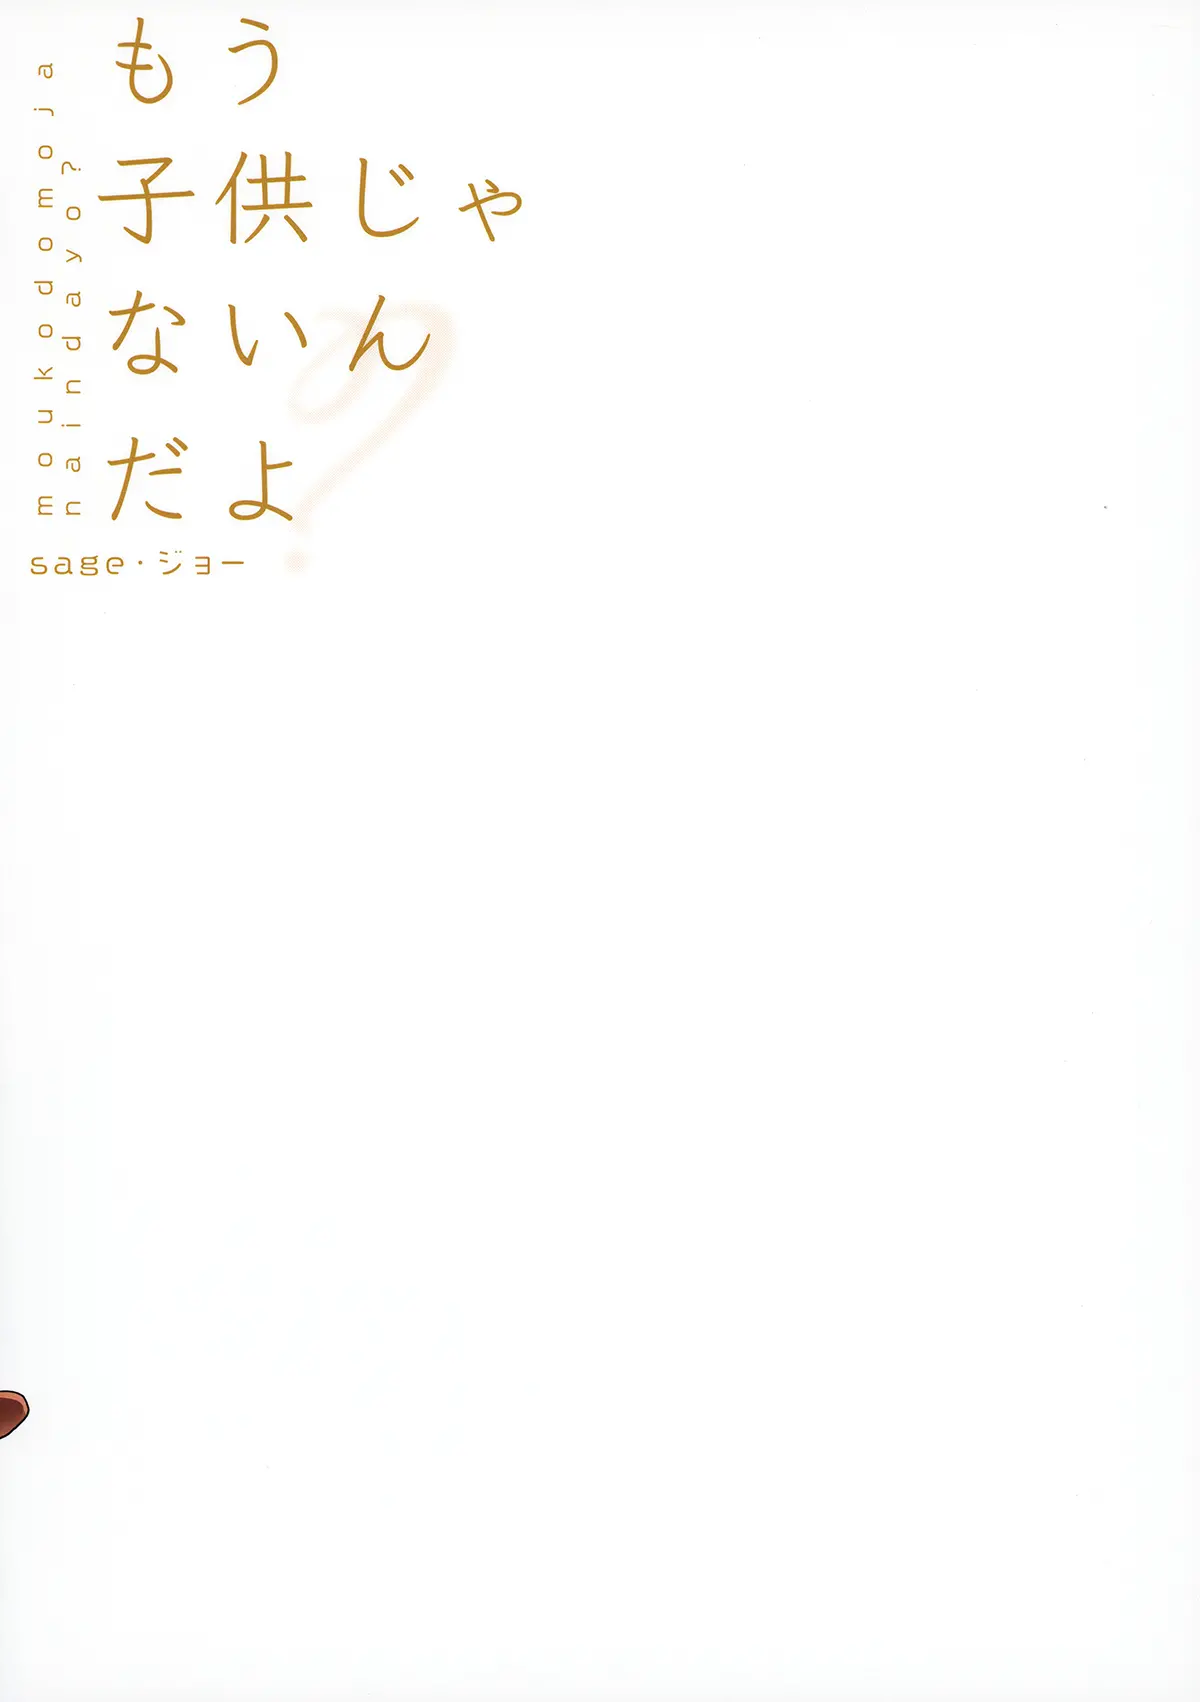 もう
子供じゃ
ないん
だよ?
moukodomoja
naindayo?
sage・ジョー